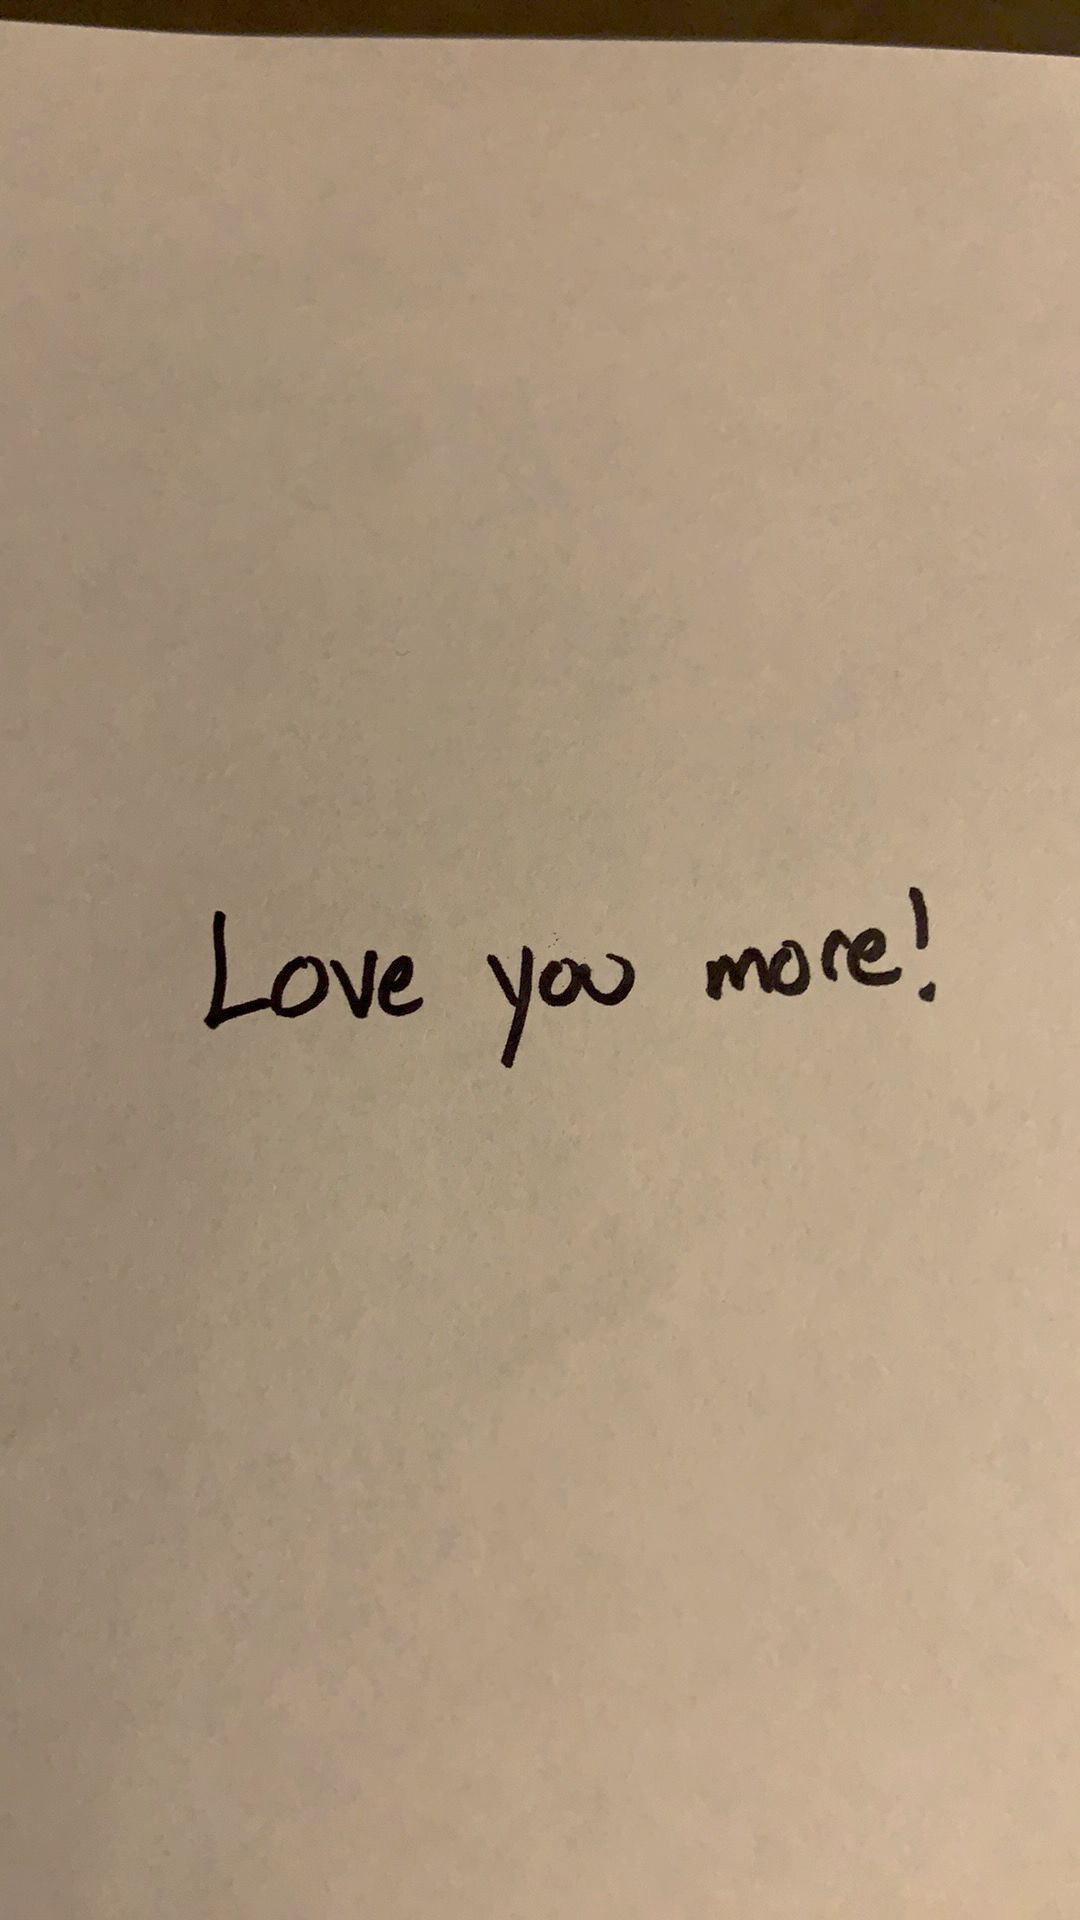 Love you more!